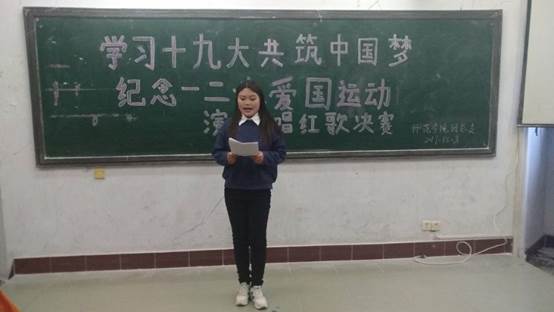 学习十九大共筑中国梦
纪念一二 爱国运动
演 唱红歌决赛